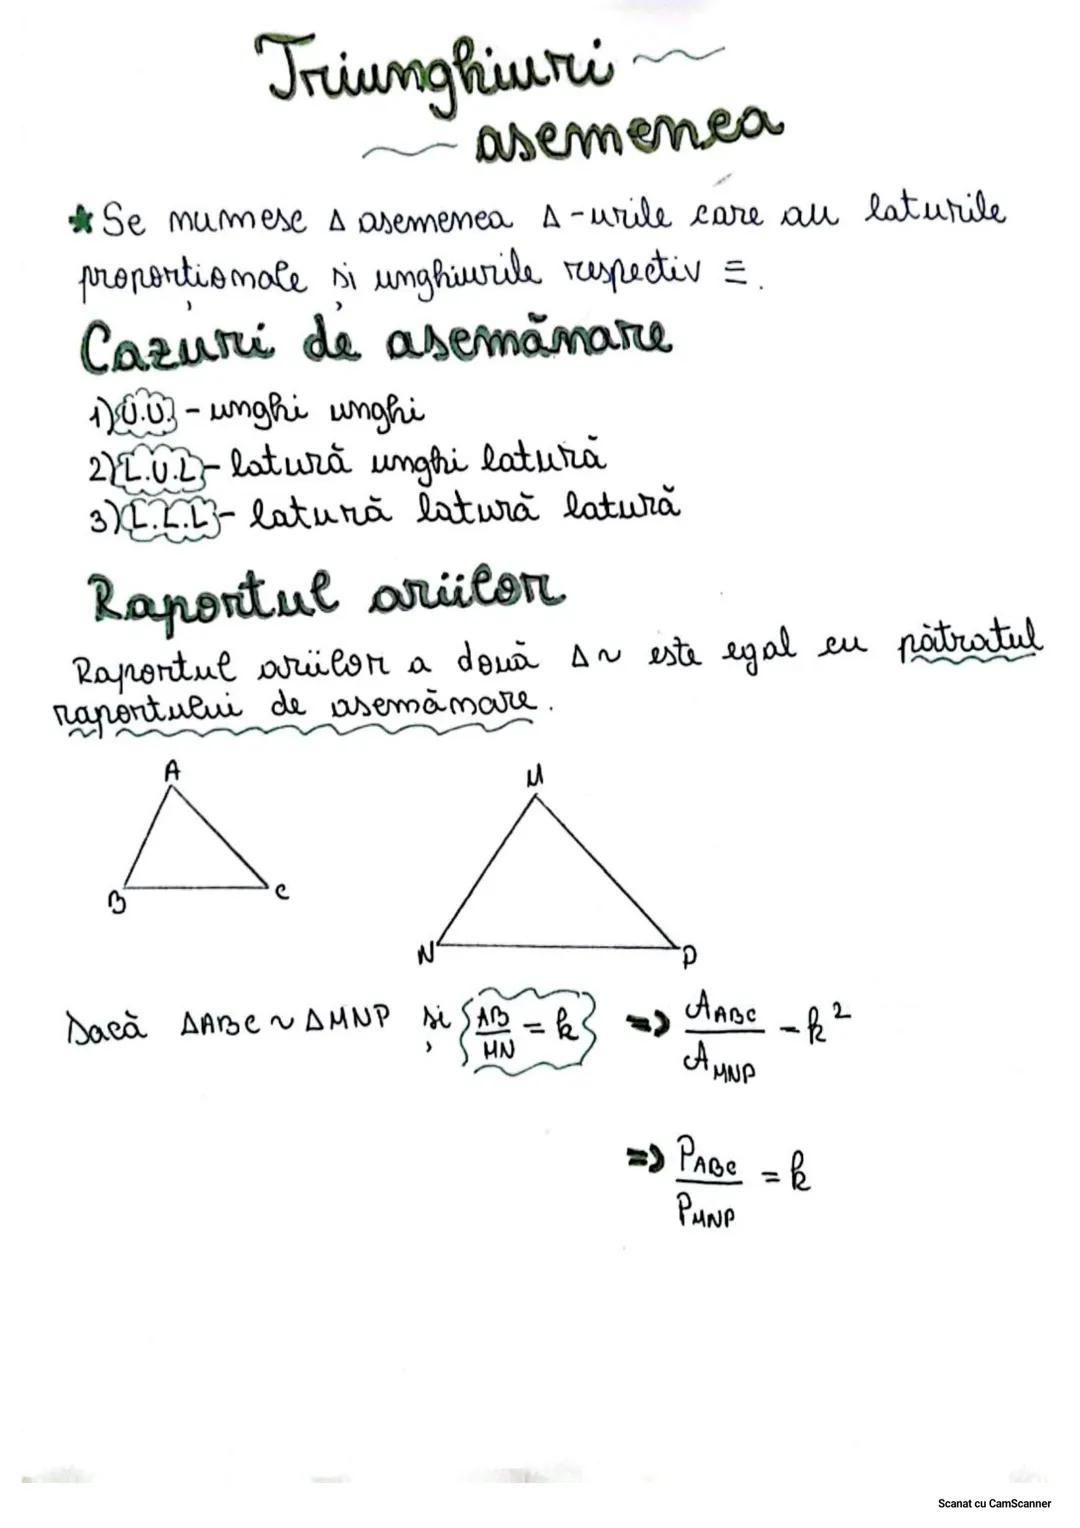 Triunghiuri
asemenea
★ Se numesc Δ asemenea Δ-urile care au laturile
proporționale și unghiurile respectiv ≡.
Cazuri de asemănare
1) U.U. - unghi unghi
2) L.U.L - latură unghi latură
3) L.L.L - latură latură latură
Raportul ariilor
Raportul ariilor a două Δ ~ este egal cu pătratul
raportului de asemănare.
A
M
B
C
N
P
Dacă ΔABC ~ ΔMNP și AB/MN = k => A ABC / A MNP = k²
=> P ABC / P MNP = k
Scanat cu CamScanner